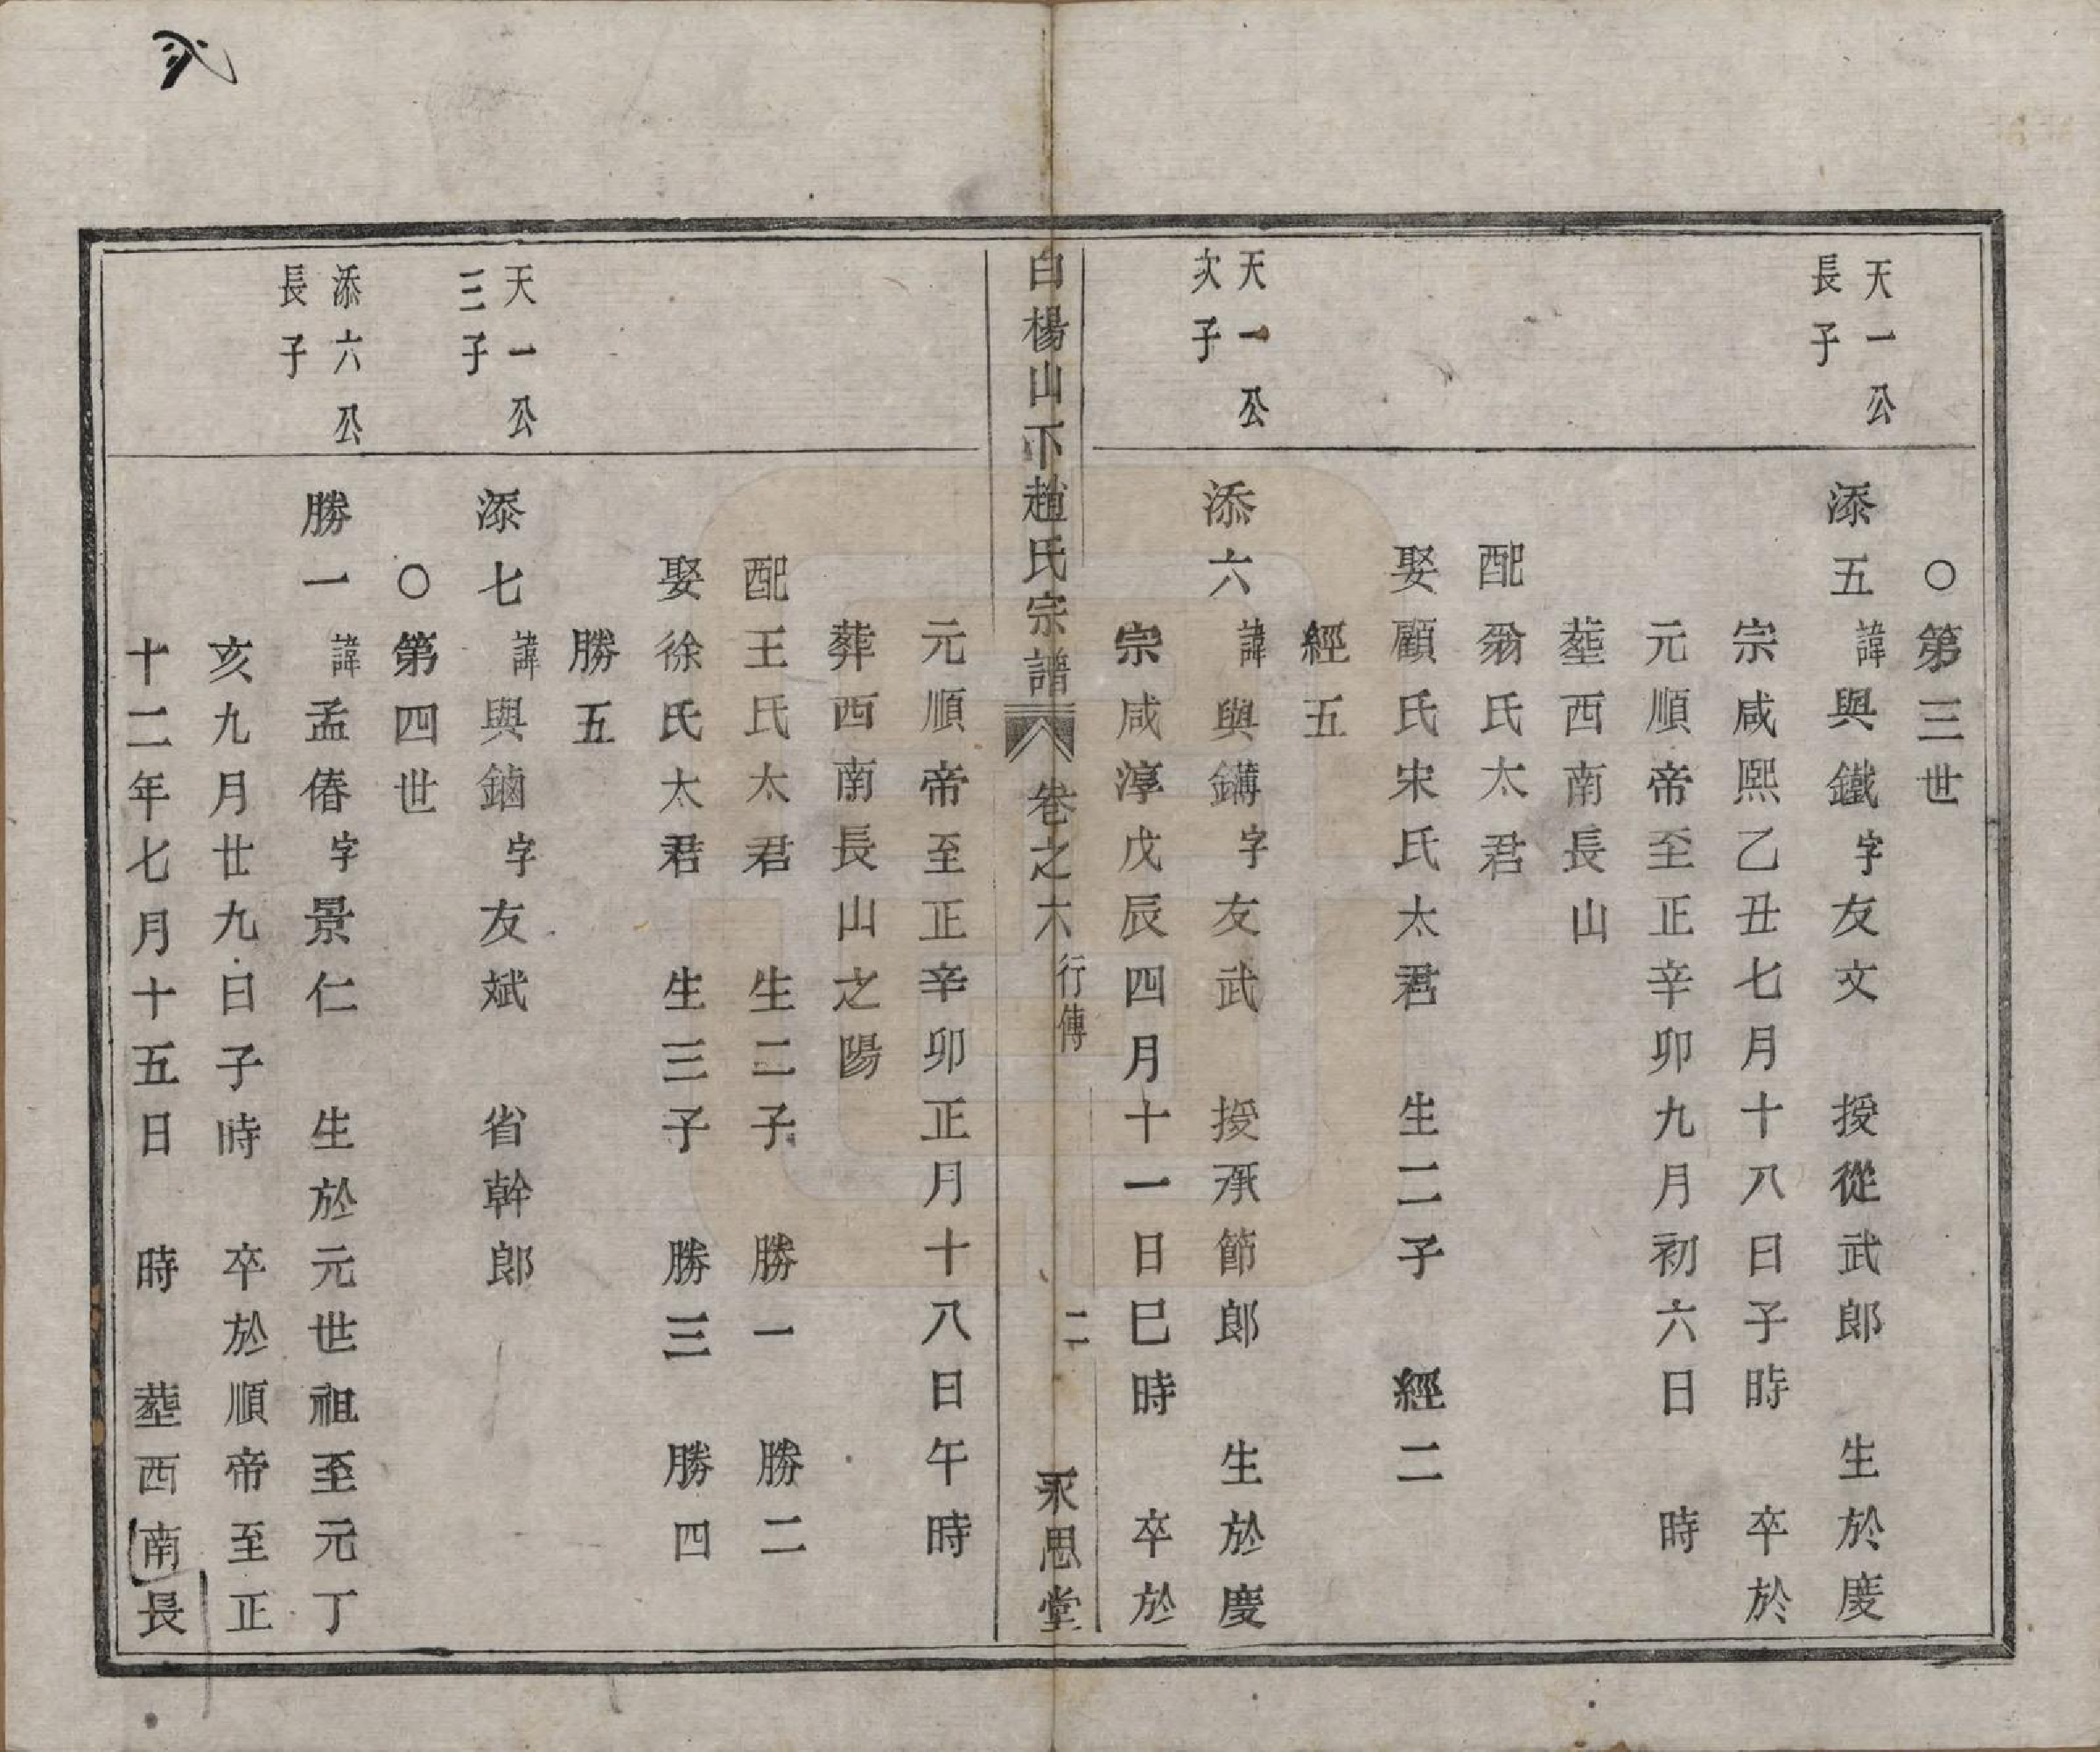 ○第三世
天一公
長子
添五諱與鐵字友文　授從武郎　生於慶
宗咸熙乙丑七月十八日子時　卒於
元順帝至正辛卯九月初六日　時
塟西南長山
配翁氏太君
娶顧氏宋氏太君　生二子　經二
經五
天一公
次子
添六諱與鏞字友武　授承節郎　生於慶
宗咸淳戊辰四月十一日巳時　卒於
白楊山下趙氏宗譜
卷之六
行傳
二
永思堂
元順帝至正辛卯正月十八日午時
葬西南長山之陽
配王氏太君　生二子　勝一　勝二
娶徐氏太君　生三子　勝三　勝四
勝五
天一公
三子
添七諱與鏀字友斌　省幹郎
○第四世
添六公
長子
勝一諱孟偆字景仁　生於元世祖至元丁
亥九月廿九日子時　卒於順帝至正
十二年七月十五日　時　塟西南長